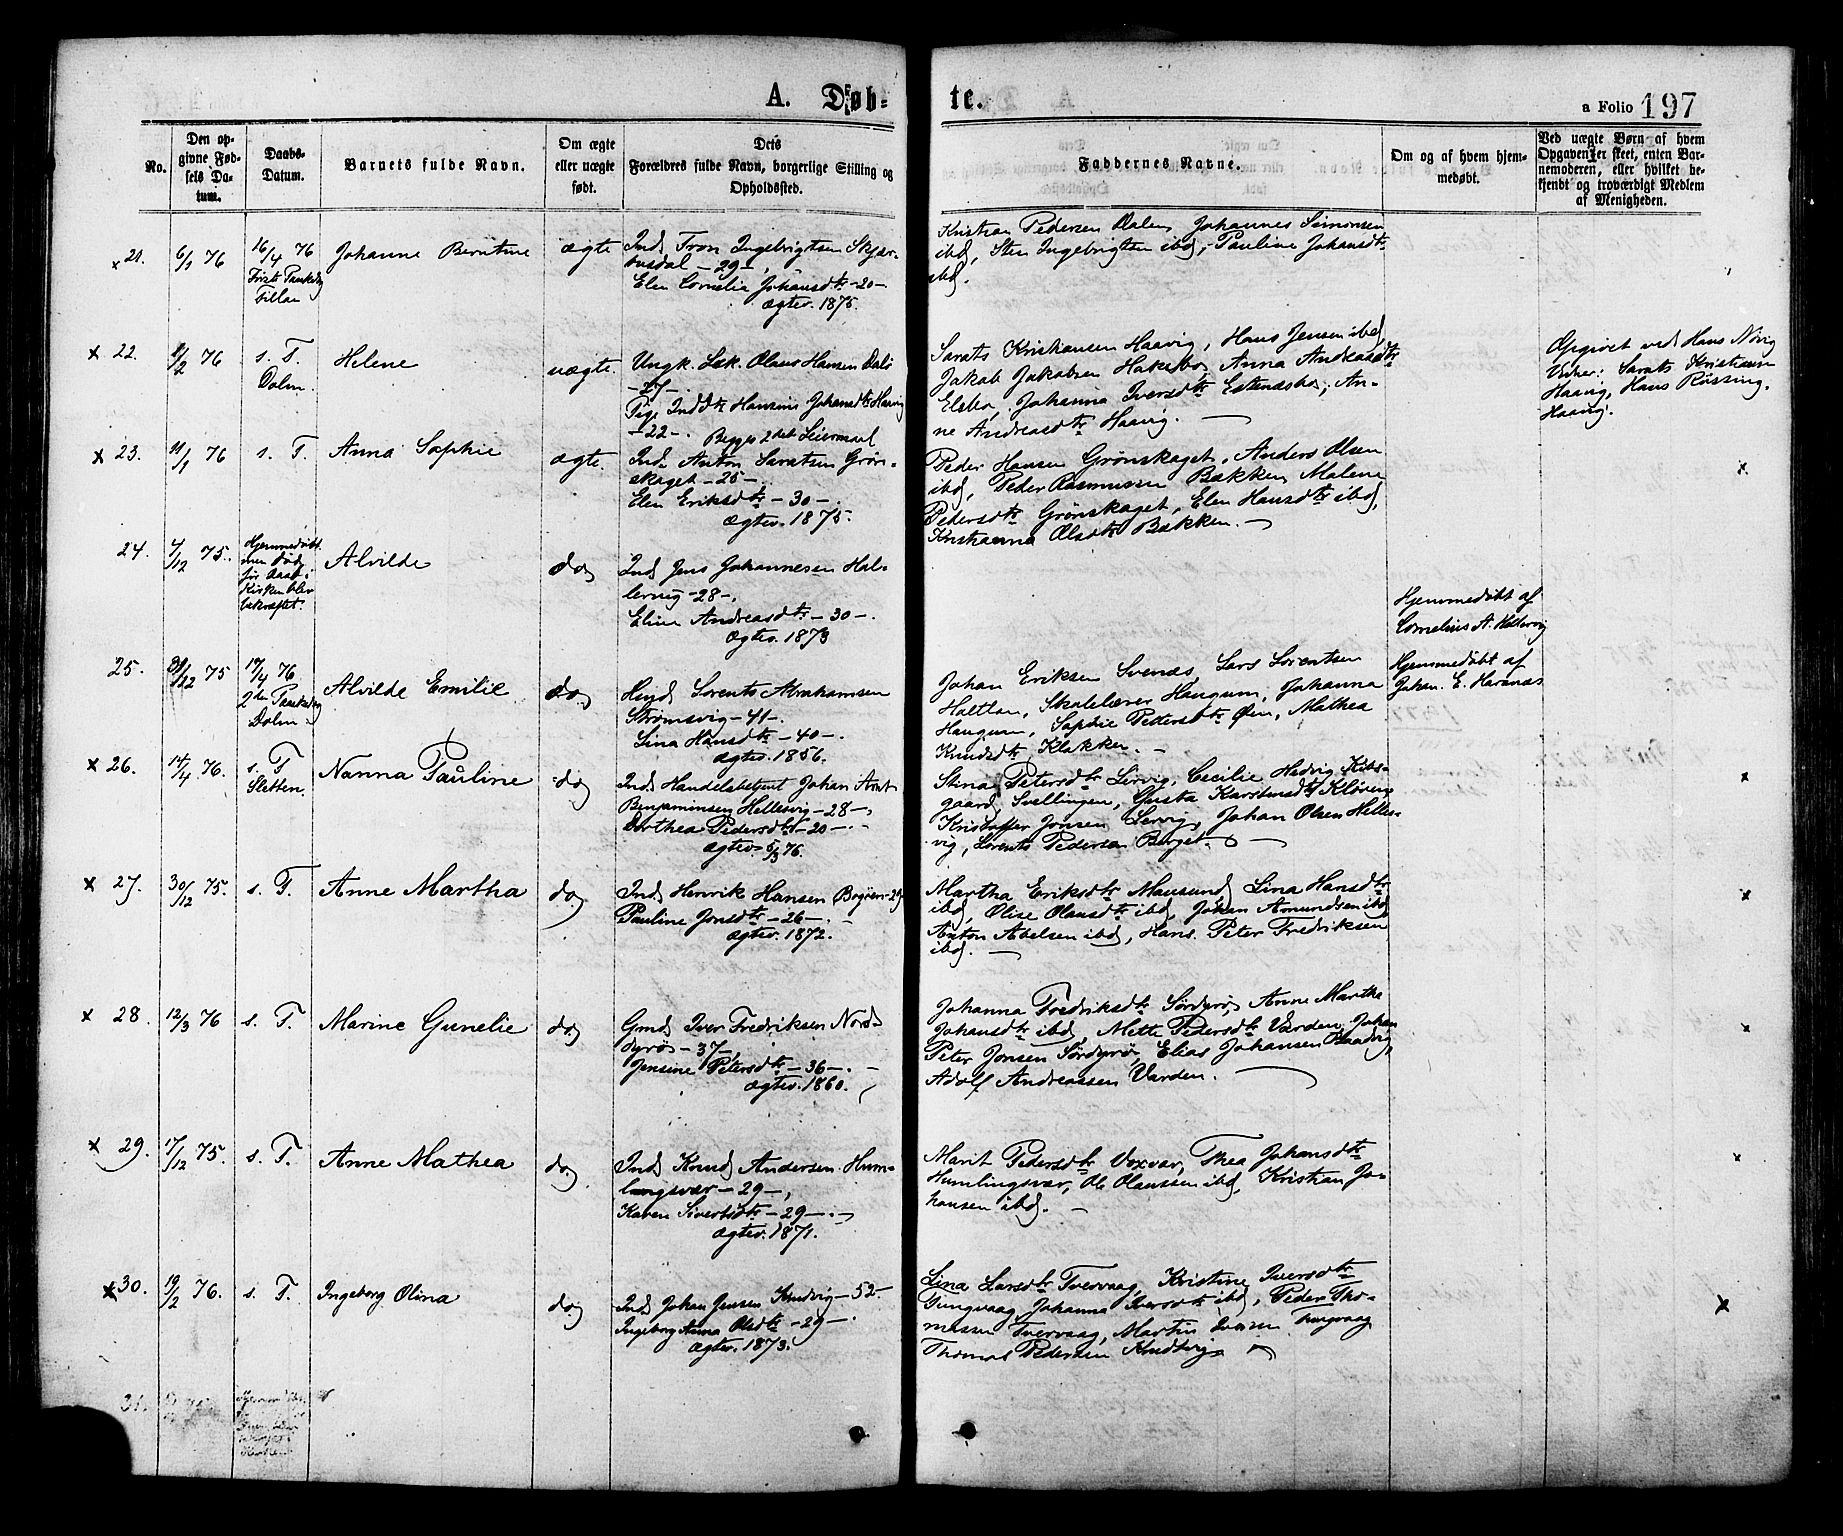 A. Døb-
te.
a Folio 197
No.
Den op-
givne Fød-
sels Da-
tum.
Daabs-
Datum.
Barnets fulde Navn.
Om ægte
eller uægte
født.
Dets
Forældres fulde Navn, borgerlige Stilling og
Opholdssted.
Faddernes Navne.
Om og af hvem hjem-
medøbt.
Ved uægte Børn af hvem
Opgaven er skeet, enten Bar-
nemoderen, eller hvilket be-
kjendt og troværdigt Medlem
af Menigheden.
x 21. 6/1 76
16/4 76
Første Paaskedag
Fillan
Johanne Berntine
ægte
Inds Tron Ingebrigtsen Skjær-
dal - 29 -,
Elen Cornelia Johansdtr - 20 -
Ægtev. 1875.
Kristian Pedersen Dalen, Johannes Simonsen
ibd, Sten Ingebrigtsen ibd, Pauline Johansdtr
ibd.
x 22. 11/2 76
s. T.
Dolm.
Helene
uægte
Ungk. Olaus Hansen Dalø
- 27 -
Pige Inddtr Hansine Johansdtr Haavig
- 22 -. Begges 2det Leiermaal
Sarats Kristiansen Haavig, Hans Jensen ibd
Jakob Jakobsen Hakebo, Anna Andreasdtr
Elsbo, Johanna Iversdtr Estensbo, An-
ne Andreasdtr Haavig.
Opgivet ved Hans
Vidner: Sarats Kristiansen
Haavig, Hans Røssing,
Haavig.
x 23. 11/1 76
s. T.
Anna Sophie
ægte.
Inds Anton Saratsen Grøn-
skaget - 25 -
Elen Eriksdtr - 30 -.
Ægtev. 1875.
Peder Hansen Grønskaget, Anders Olsen
ibd, Peder Rasmussen Bakken, Malene
Pedersdtr Grønskaget, Elen Hansdtr ibd,
Kristianna Olsdtr Bakken. -
x
24. 4/12 75.
Hjemmedøbt
men død
før Daab i
Kirken blev
bekræftet.
Alvilde
do
Inds Jens Johannesen Hal-
- 28 -.
Eline Andreasdtr - 30 -.
Ægtev. 1873
Hjemmedøbt af
Cornelius A.
25. 31/12 75
17/4 76
2den Paaskedag
Dolm
Alvilde Emilie
do
Husd Lorents Abrahamsen
Strømsvig - 41 -.
Lina Hansdtr - 40 -.
Ægtev. 1856.
Johan Eriksen Svenæs, Lars Lorentsen
Haltlan, Skolelærer Haugum, Johanna
Haugum, Sophie Pedersdtr Øien, Mathea
Knudsdtr Klakken. -
Hjemmedøbt af
Johan. E.
x 26. 14/4 76.
s. T
Sletten.
Nanna Pauline
do
Inds Handelsbetjent Johan Arnt
Benjaminsen Hellesvig - 28 -,
Dorthea Pedersdtr - 20 -.
Ægtev. 5/3 76.
Stina Petersdtr Lervig, Cecilie Hedvig
gaard, Svellingen, Gusta Karstensdtr
Kristoffer Jonsen Lervig, Johan Olsen Helles-
vig, Lorents Pedersen Berget.
x
x 27. 30/12 75.
s. T.
Anne Martha
do
Inds Henrik Hansen Bogøen - 29
Pauline Jonsdtr - 26 -.
Ægtev. 1872.
Martha Eriksdtr Mausund, Lina Hansdtr
ibd, Olise Olausdtr ibd, Johan Amundsen ibd
Anton Abelsen ibd, Hans Peter Fredriksen
ibd. -
x
x 28. 12/3 76
s. T.
Marine Gunelie
do
Gmd Iver Fredriksen Nord-
dyrøs - 37 -,
Jensine Petersdtr - 36 -.
Ægtev. 1860.
Johanna Fredriksdtr Sørdyrø, Anne Martha
Johansdtr ibd, Mette Pedersdtr Varden, Johan
Peter Jonsen Sørdyrø, Elias Johansen
Adolf Andreassen Varden. -
x
x 29. 17/12 75.
s. T.
Anne Mathea
do
Inds Knud Andersen Hum-
lingsvær - 29 -,
Karen Sivertsdtr - 29 -.
Ægtev. 1871.
Marit Pedersdtr Voxvær, Thea Johansdtr
Humlingsvær, Ole Olaussen ibd, Kristian Jo-
hansen ibd. -
x
x 30. 19/2 76.
s. T.
Ingeborg Olina
do
Inds Johan Jensen Knudvig - 52 -
Ingeborg Anna Olsdtr - 29 -.
Ægtev. 1873.
Lina Larsdtr Tvervaag, Kristine Iversdtr
Tungvaag, Johanna Iversdtr ibd, Peder Tho-
massen Tvervaag, Martin Iversen Tungvaag
Thomas Pedersen
x
31.